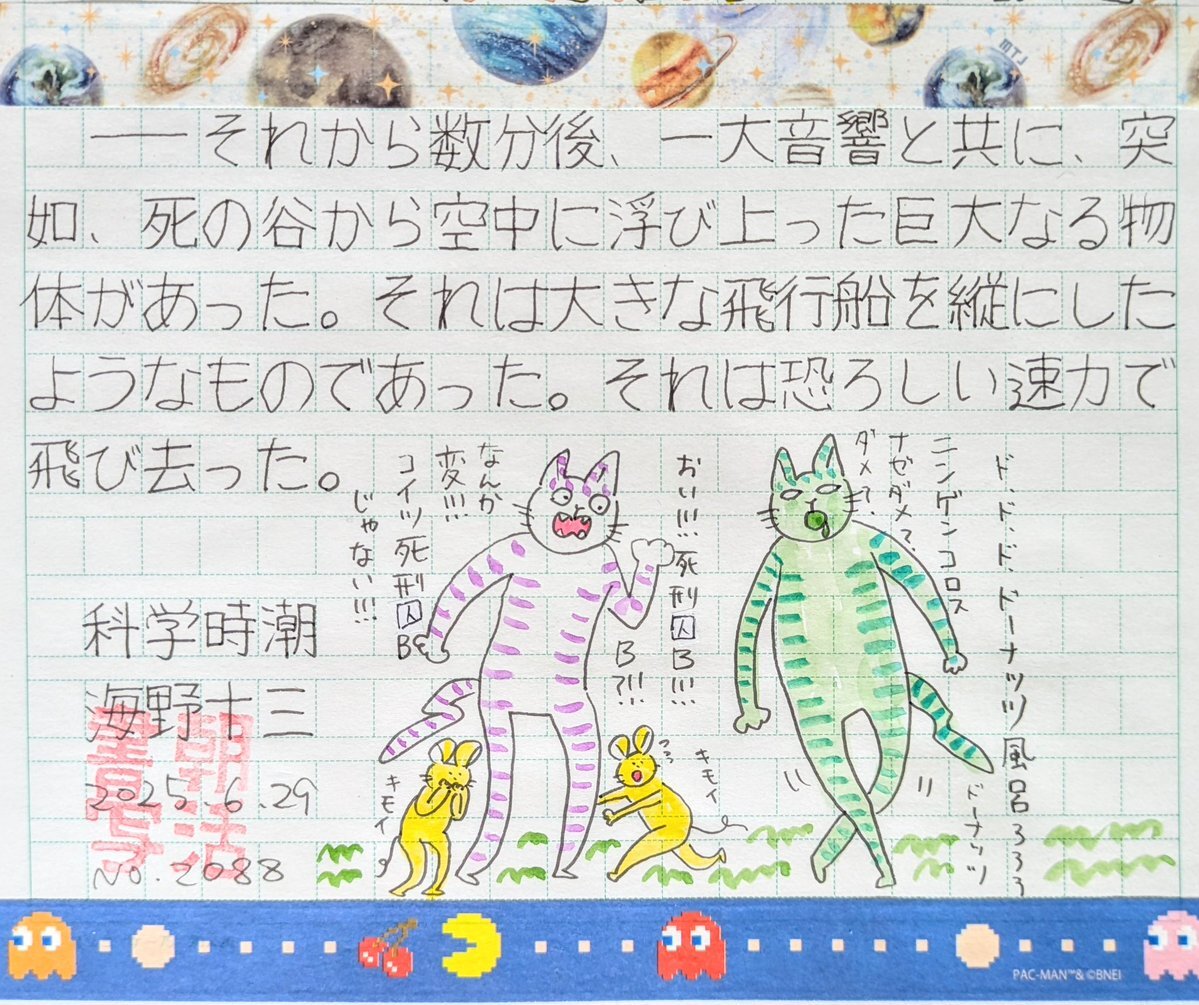 ――それから数分後、一大音響と共に、突
如、死の谷から空中に浮び上った巨大なる物
体があった。それは大きな飛行船を縦にした
ようなものであった。それは恐ろしい速力で
飛び去った。
科学時潮
海野十三
2025.6.29
No.2088
朝活
書写
ド、ド、ド、ドーナッツ風呂ろろろ
ニンゲンコロス
ナゼダメ?
ダメ?
ドーナッツ
おい!!!死刑囚B!!!
B?!!!
なんか
変!!!
コイツ死刑囚B
じゃない!!!
キモイ
キモイ
mt
PAC-MAN™& ©BNEI